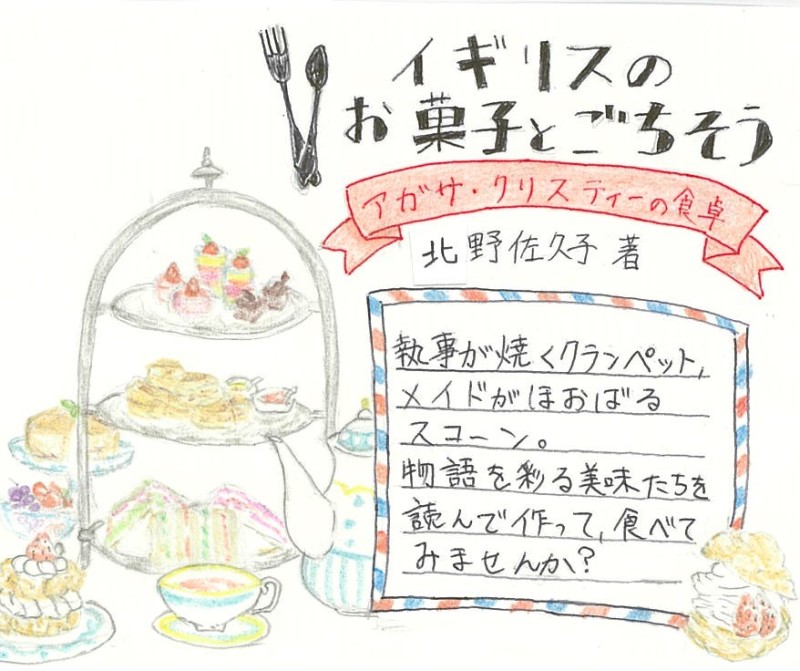 イギリスの
お菓子とごちそう
アガサ・クリスティーの食卓
北野佐久子 著
執事が焼くクランペット,
メイドがほおばる
スコーン。
物語を彩る美味たちを
読んで作って,食べて
みませんか?